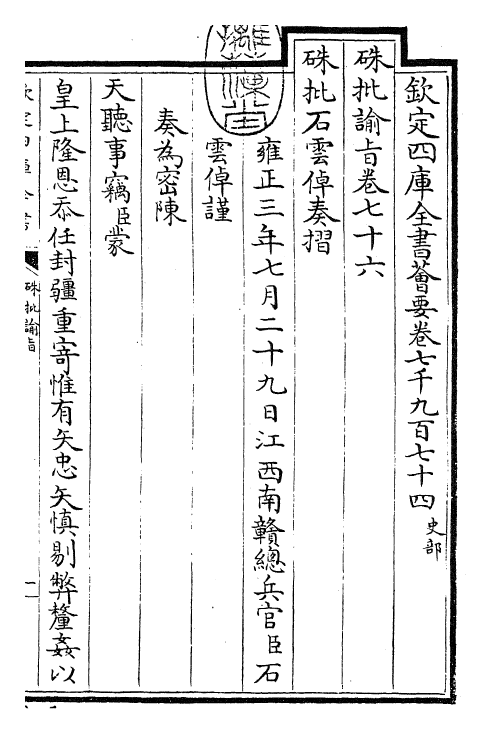 欽定四庫全書薈要卷七千九百七十四 史部
硃批諭旨卷七十六
硃批石雲倬奏摺
雍正三年七月二十九日江西南贛總兵官臣石
雲倬謹
奏為密陳
天聽事竊臣蒙
皇上隆恩忝任封疆重寄惟有矢忠矢慎剔弊釐姦以
硃批諭旨
一